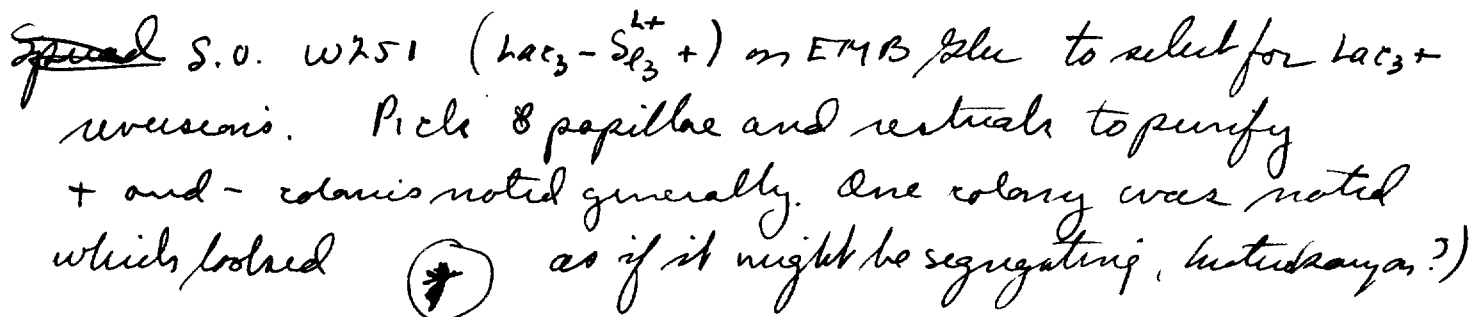 Spread S.O. W251 (Lac₃- S^{L+}_{ℓ3} +) on EMB Glu to select for Lac₃+
reversions. Pick 8 papillae and restreak to purify
+ and - colonies noted generally. One colony was noted
which looked as if it might be segregating,